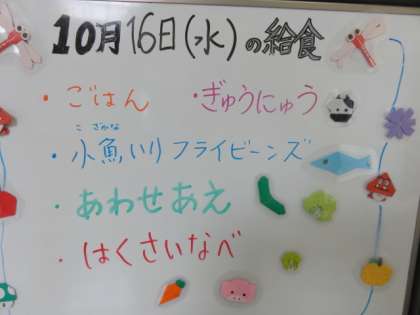 10月16日(水)の給食
・ごはん ・ぎゅうにゅう
こざかな
・小魚いりフライビーンズ
・あわせあえ
・はくさいなべ